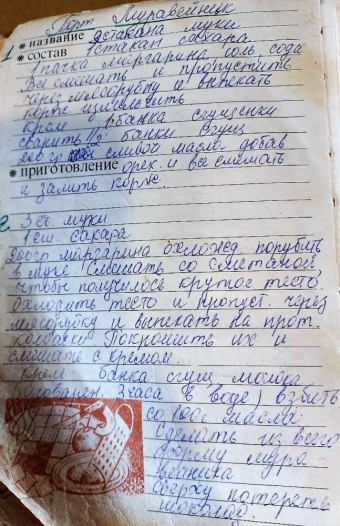 Торт Муравейник
1 * название 3стакана муки
* состав 1стакан сахара
1 пачка маргарина соль сода
Все смешать и пропустить
через мясорубку и выпекать
коржи измельчить
Крем 1 банка сгущенки
сварить 1/2 банки сгущ
200 гр сливоч масла добав
* приготовление орех. и все смешать
и залить коржи.
2 3 ст муки
1 ст. сахара
200гр маргарина охложед порубить
в муке смешать со сметаной,
чтобы получилось крутое тесто,
Охлодить тесто и пропуст. через
мясорубку и выпекать на прот.
Покрошить их и
смешать с кремом.
Крем банка сгущ молока
(поварен 3 часа в воде) взбить
со 100г масла
сделать из всего
форму мура-
вейника
Сверху потереть
шоколад.